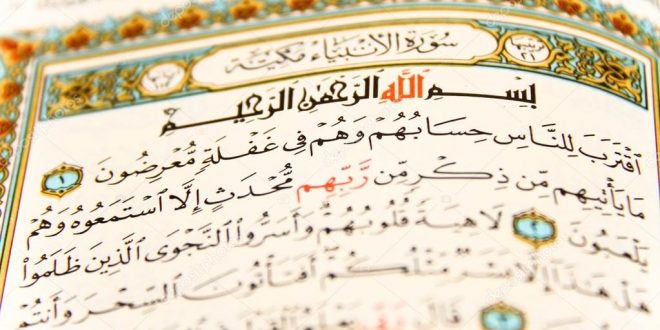 سُورَةُ الْأَنْبِيَاءِ مَكِّيَّةٌ
بِسْمِ ٱللَّهِ ٱلرَّحْمَٰنِ ٱلرَّحِيمِ
ٱقْتَرَبَ لِلنَّاسِ حِسَابُهُمْ وَهُمْ فِى غَفْلَةٍ مُّعْرِضُونَ ١
مَا يَأْتِيهِم مِّن ذِكْرٍ مِّن رَّبِّهِم مُّحْدَثٍ إِلَّا ٱسْتَمَعُوهُ وَهُمْ
يَلْعَبُونَ ٢ لَاهِيَةً قُلُوبُهُمْ وَأَسَرُّوا۟ ٱلنَّجْوَى ٱلَّذِينَ ظَلَمُوا۟
هَلْ هَٰذَآ إِلَّا بَشَرٌ مِّثْلُكُمْ أَفَتَأْتُونَ ٱلسِّحْرَ وَأَنتُمْ
قَالَ رَبِّى يَعْلَمُ